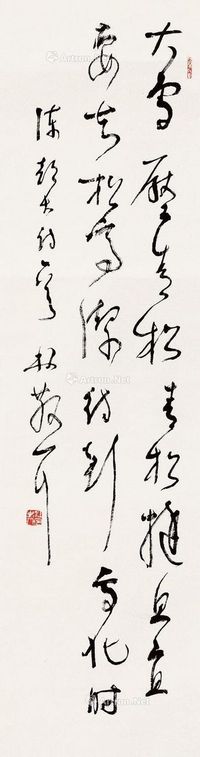 大雪压青松青松挺且直
要知松高洁待到雪化时
陈毅大将诗 林散之